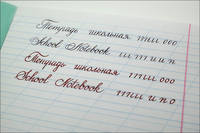 Тетрадь школьная тии ооо
School Notebook ш т и п
Тетрадь школьная тии ооо
School Notebook т и п о